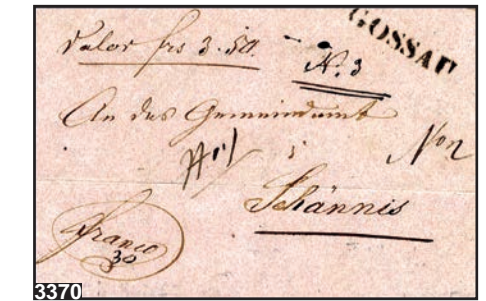 GOSSAU
Valor frs 3. 50.
N. 3
An das Gemeindamt
Non
Schännis
Franco
30
3370